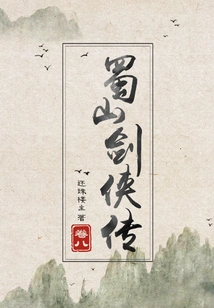 蜀山剑侠传
还珠楼主 著
卷八